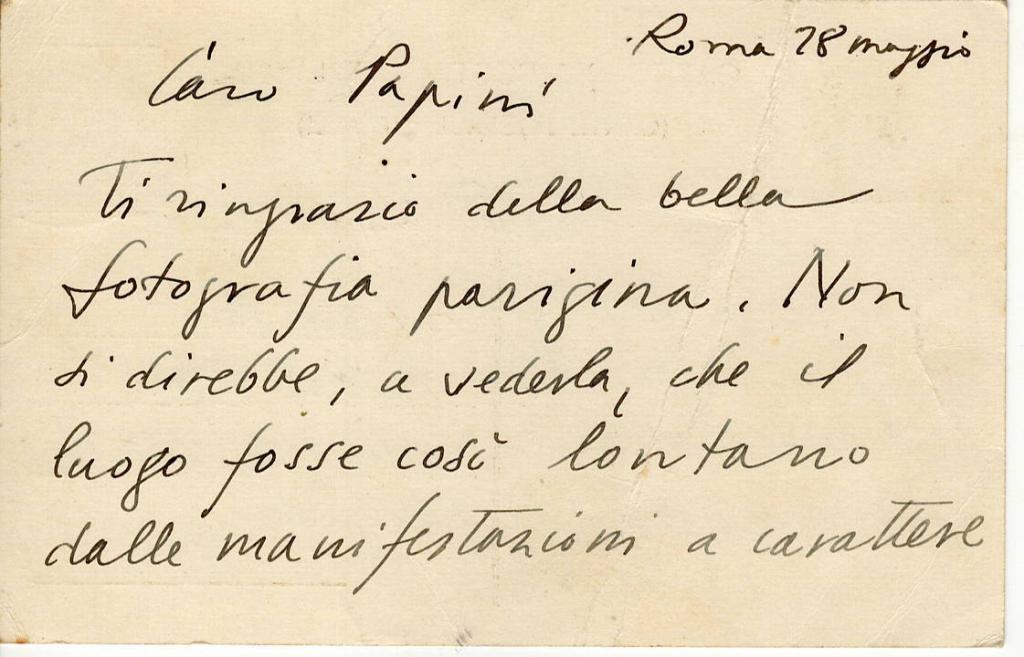 Roma 28 maggio
Caro Papini
Ti ringrazio della bella
fotografia parigina. Non
si direbbe, a vederla, che il
luogo fosse così lontano
dalle manifestazioni a carattere